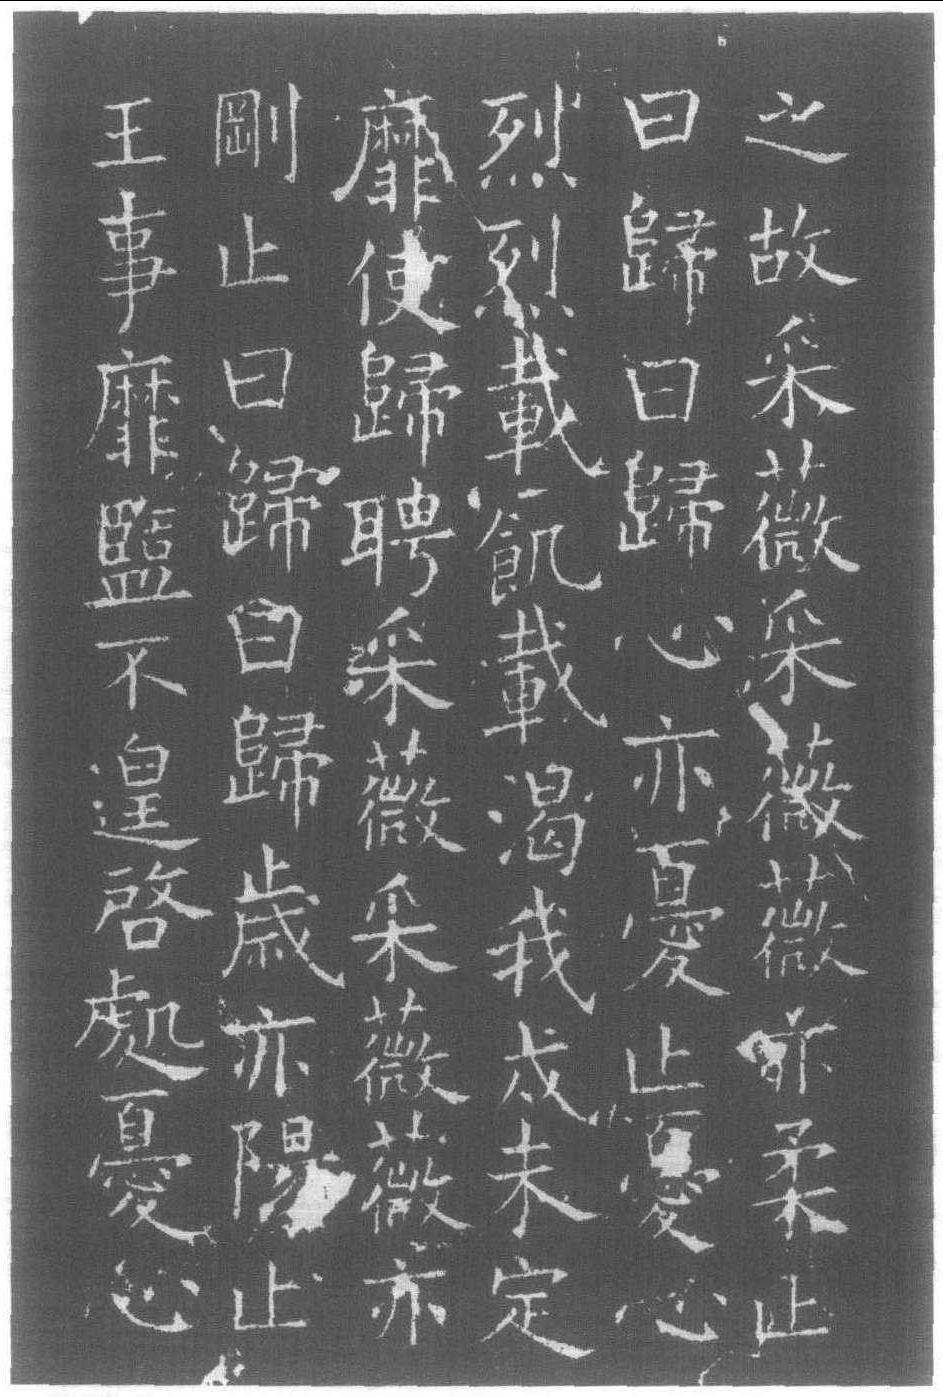 之故采薇采薇薇亦柔止
曰歸曰歸心亦憂止憂心
烈烈載飢載渴我戍未定
靡使歸聘采薇采薇薇亦
剛止曰歸曰歸歲亦陽止
王事靡盬不遑啓處憂心